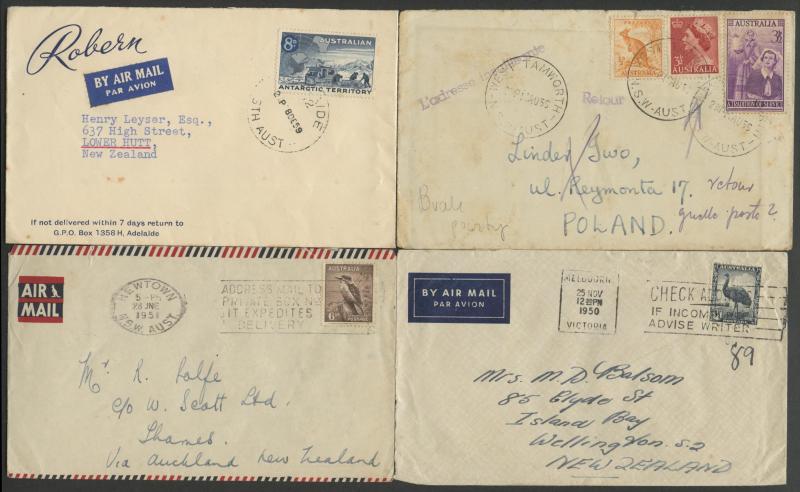 Robern
BY AIR MAIL
PAR AVION
8D
AUSTRALIAN
ANTARCTIC TERRITORY
8DE59
STH AUST
Henry Leyser, Esq.,
637 High Street,
LOWER HUTT,
New Zealand
If not delivered within 7 days return to
G.P.O. Box 1358 H, Adelaide
L'adresse
Retour
WEST TAMWORTH
N.S.W-AUST
AUSTRALIA
3½D
AUSTRALIA
3½D
AUSTRALIA
A TRADITION OF SERVICE
N.S.W-AUST
Linder Iwo,
ul. Reymonta 17.
POLAND.
retour
quelle poste?
AIR
MAIL
NEWTOWN
5-PM
28 JNE
1951
N.S.W. AUST
ADDRESS MAIL TO
PRIVATE BOX No
IT EXPEDITES
DELIVERY
AUSTRALIA
6D
POSTAGE
Mr R. Rolfe
c/o W. Scott Ltd.
Thames.
Via Auckland New Zealand
BY AIR MAIL
PAR AVION
MELBOURN
25 NOV
12 PM
1950
VICTORIA
CHECK
IF INCOM
ADVISE WRITER
AUSTRALIA
89
Mrs. M. D. Balsom
85 Clyde St
Island Bay
Wellington. S.2
NEW ZEALAND